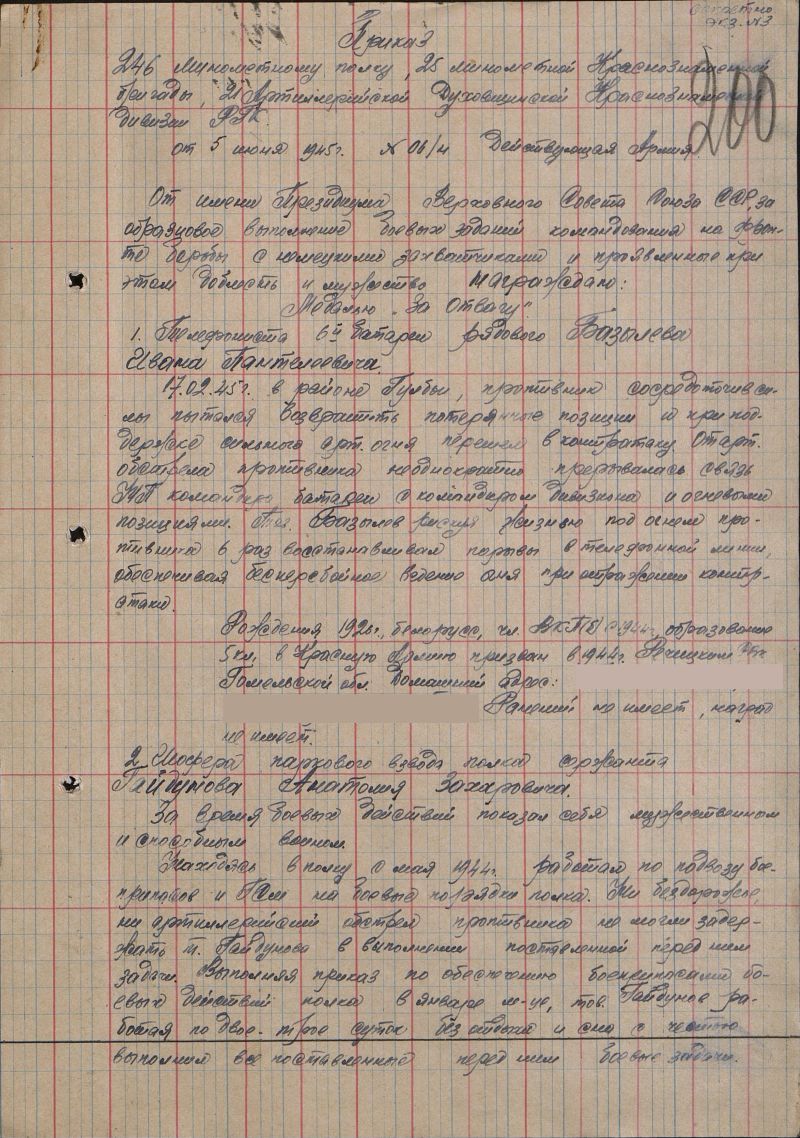 секретно
экз. №3
Приказ
200
246 минометному полку, 25 минометной Краснознаменной
бригады, 21 Артиллерийской Духовщинской Краснознаменной
дивизии РГК.
от 5 июня 1945г. № 06/н Действующая Армия
От имени Президиума Верховного Совета Союза ССР, за
образцовое выполнение боевых заданий командования на фрон-
те борьбы с немецкими захватчиками и проявленные при
этом доблесть и мужество награждаю:
Медалью „За Отвагу“.
1. Телефониста 6й батареи рядового Базылева
Ивана Пантелеевича.
17.02.45г. в районе Гулбьи, противник сосредоточив си-
лы пытался возвратить потерянные позиции и при под-
держке сильного арт. огня перешел в контратаку. От арт.
обстрела противника неоднократно прерывалась связь
НП командира батареи с командиром дивизиона и огневыми
позициями. Тов. Базылев рискуя жизнью под огнем про-
тивника 6 раз восстанавливал порывы в телефонной линии,
обеспечивая бесперебойное ведение огня при отражении контр-
атаки.
Рождения 1926г., белорусс, чл. ВКП(б) с 1944г., образование
5 кл., в Красную Армию призван в 1944г. Речицким РВК
Гомельской обл. Домашний адрес:
Ранений не имеет, наград
не имеет.
2. Шофера паркового взвода полка сержанта
Гайдукова Анатолия Захаровича.
За время боевых действий показал себя мужественным
и способным воином.
Находясь в полку с мая 1944г. работал по подвозу бое-
припасов и ГСМ на боевые порядки полка. Ни бездорожье,
ни артиллерийский обстрел противника не могли задер-
жать т. Гайдукова в выполнении поставленной перед ним
задачи. Выполняя приказ по обеспечению боеприпасами бо-
евых действий полка в январе м-це, тов. Гайдуков ра-
ботая по двое-трое суток без отдыха и сна с честью
выполнил все поставленные перед ним боевые задачи.